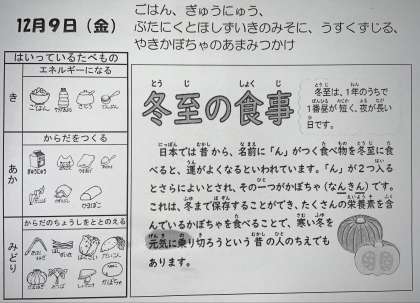 12月9日（金）
ごはん、ぎゅうにゅう、
ぶたにくとほしずいきのみそに、うすくずじる、
やきかぼちゃのあまみつかけ
はいっているたべもの
エネルギーになる
き
ごはん
さとう
でんぷん
からだをつくる
あか
ぎゅうにゅう
みそ
からだのちょうしをととのえる
みどり
冬至の食事
とうじ しょくじ
冬至は、1年のうちで
1番昼が短く、夜が長い
日です。
日本では昔から、名前に「ん」がつく食べ物を冬至に食
べると、運がよくなるといわれています。「ん」が2つ入る
とさらによいとされ、その一つがかぼちゃ（なんきん）です。
これは、冬まで保存することができ、たくさんの栄養素を含
んでいるかぼちゃを食べることで、寒い冬を
元気に乗り切ろうという昔の人のちえでも
あります。